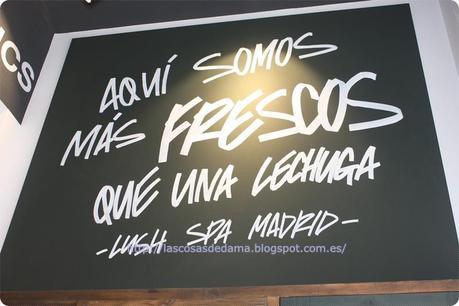 ICS
AQUÍ SOMOS
MÁS FRESCOS
QUE UNA LECHUGA
-LUSH SPA MADRID-
http://lascosasdedama.blogspot.com.es/